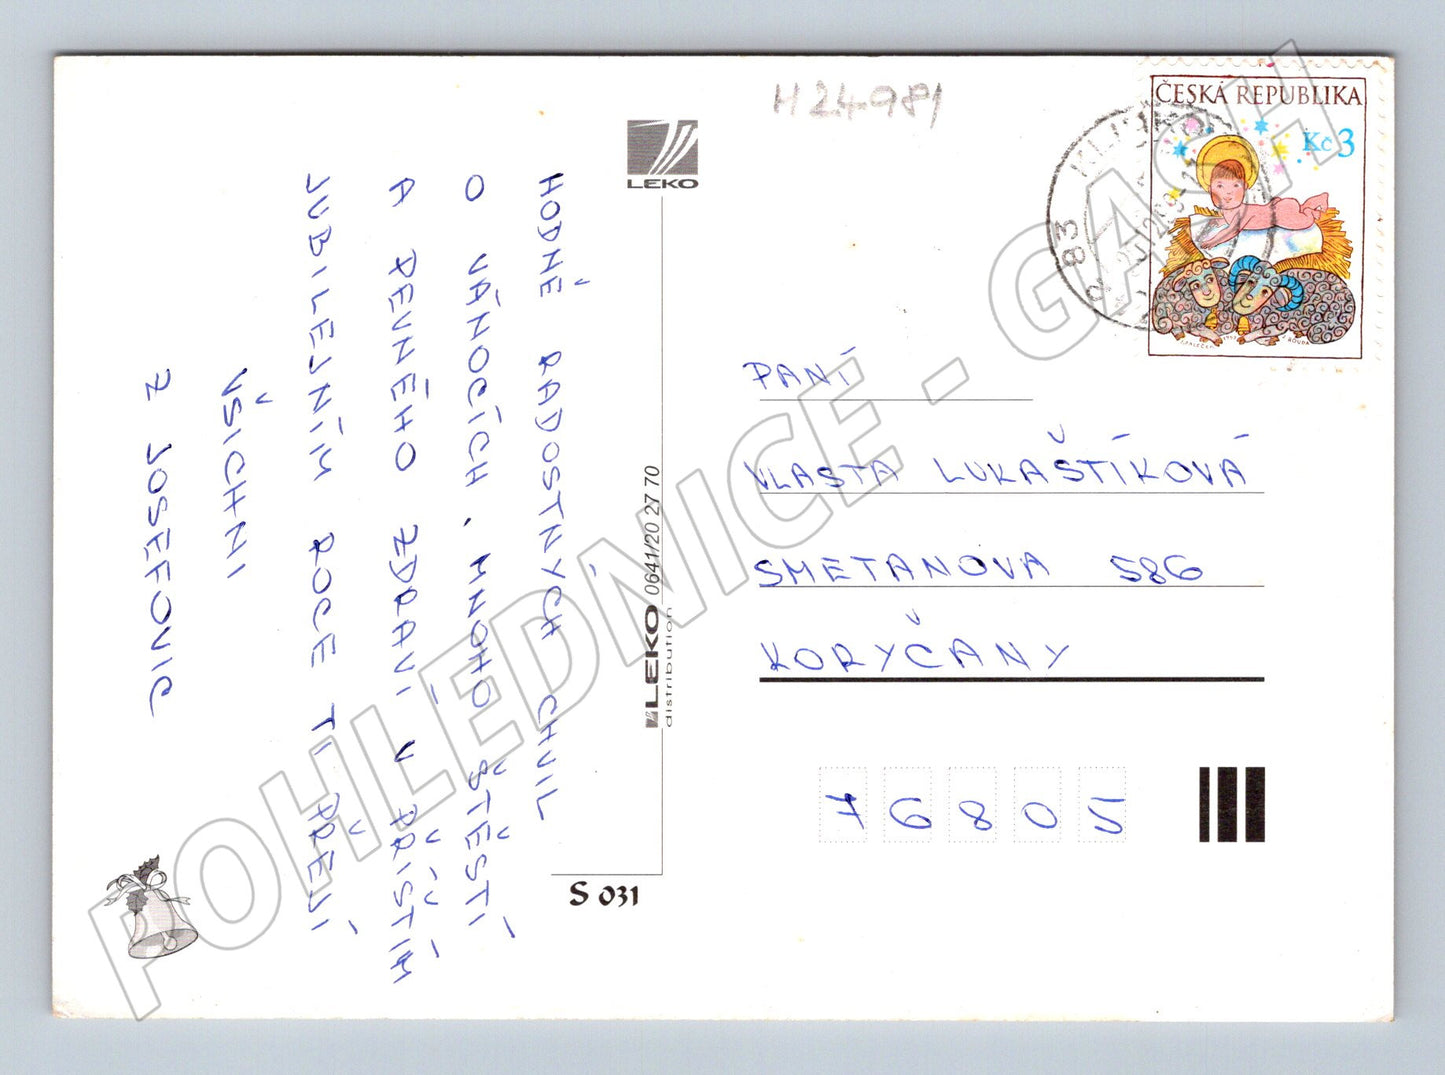 H 24981
ČESKÁ REPUBLIKA
Kč 3
LEKO
HODNĚ RADOSTNÝCH CHVIL
O VÁNOCÍCH, MNOHO ŠTĚSTÍ
A PEVNÉHO ZDRAVÍ V PŘÍŠTÍM
JUBILEJNÍM ROCE TI PŘEJÍ
VŠICHNI
Z JOSEFOVIC
LEKO 0641/20 27 70
distribution
S 031
PANÍ
VLASTA LUKAŠTÍKOVÁ
SMETANOVA 586
KORYČANY
76805
POHLEDNICE - GASH